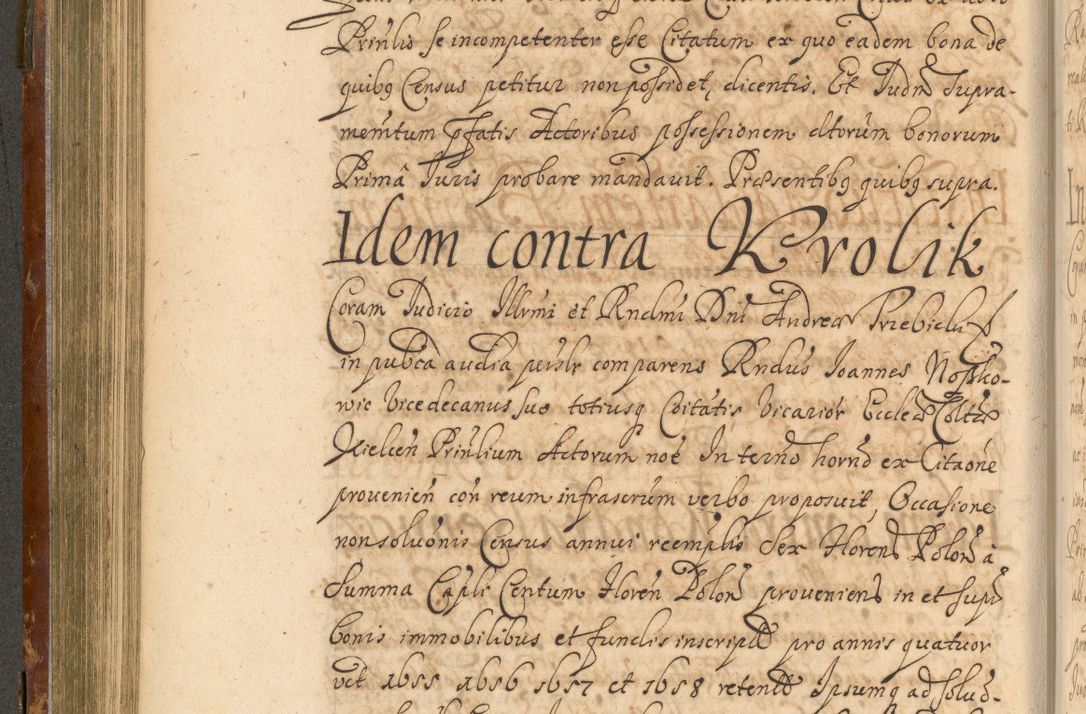 Prinlis se incompetenter esse Citatum ex quo eadem bona de
quibg Census petitur non possidet, dicentis. Et Judm Supra-
memtum pfatis Actoribus possessionem dtorum bonorum
Prima Juris probare mandavit. Præsentibg quibg supra.
Idem contra Krolik
Coram Judicio Illrmi et Rndmi Dni Andreæ Trzebicki
in pubca audia pnslr comparens Rndus Joannes Nossko-
wic Vicedecanus suo totiusq Coitatis Vicarior Eccleæ Coltæ
Kielcen Prinlium Actorum noe In termo horno ex Citaone
provenien con reum infrascrum verbo proposuit, Occasione
non solvonis Census annui reemplis Sex Floreno Polono a
Summa Capli Centum Floren Polono proveniens in et supr
bonis immobilibus et fundis inscriptæ pro annis quatuor
vct 1655 1656 1657 et 1658 retentæ Ipsumq ad solvd-